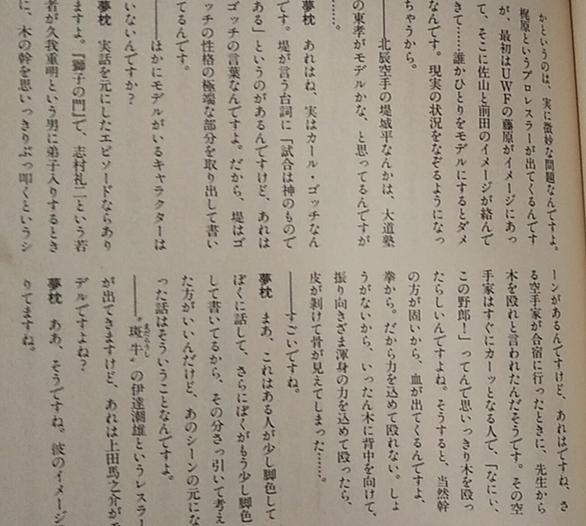 かというのは、実に微妙な問題なんですよ。
梶原というプロレスラーが出てくるんです
が、最初はUWFの藤原がイメージにあっ
て、そこに佐山と前田のイメージが絡んで
きて……誰かひとりをモデルにするとダメ
なんです。現実の状況をなぞるようになっ
ちゃうから。
――北辰空手の堤城平なんかは、大道塾
の東孝がモデルかな、と思ってるんですが
……。
夢枕 あれはね、実はカール・ゴッチなん
です。堤が言う台詞に「試合は神のもので
ある」というのがあるんですけど、あれは
ゴッチの言葉なんですよ。だから、堤はゴ
ッチの性格の極端な部分を取り出して書い
てるんです。
――ほかにモデルがいるキャラクターは
いないんですか?
夢枕 実話を元にしたエピソードならあり
ますよ。『獅子の門』で、志村礼二という若
者が久我重明という男に弟子入りするとき
に、木の幹を思いっきりぶっ叩くというシ
ーンがあるんですけど、あれはですね、さ
る空手家が合宿に行ったときに、先生から
木を殴れと言われたんだそうです。その空
手家はすぐにカーッとなる人で、「なにい、
この野郎!」ってんで思いっきり木を殴っ
たらしいんですよね。そうすると、当然幹
の方が固いから、血が出てくるんですよ、
拳から。だから力を込めて殴れない。しょ
うがないから、いったん木に背中を向けて、
振り向きざま渾身の力を込めて殴ったら、
皮が剥けて骨が見えてしまった……。
――すごいですね。
夢枕 まあ、これはある人が少し脚色して
ぼくに話して、さらにぼくがもう少し脚色
して書いてるから、その分さっ引いて考え
た方がいいんだけど、あのシーンの元にな
った話はそういうことなんですよ。
――“斑牛”の伊達潮雄というレスラー
が出てきますけど、あれは上田馬之介がモ
デルですよね?
夢枕 ああ、そうですね。彼のイメージ
りてますね。